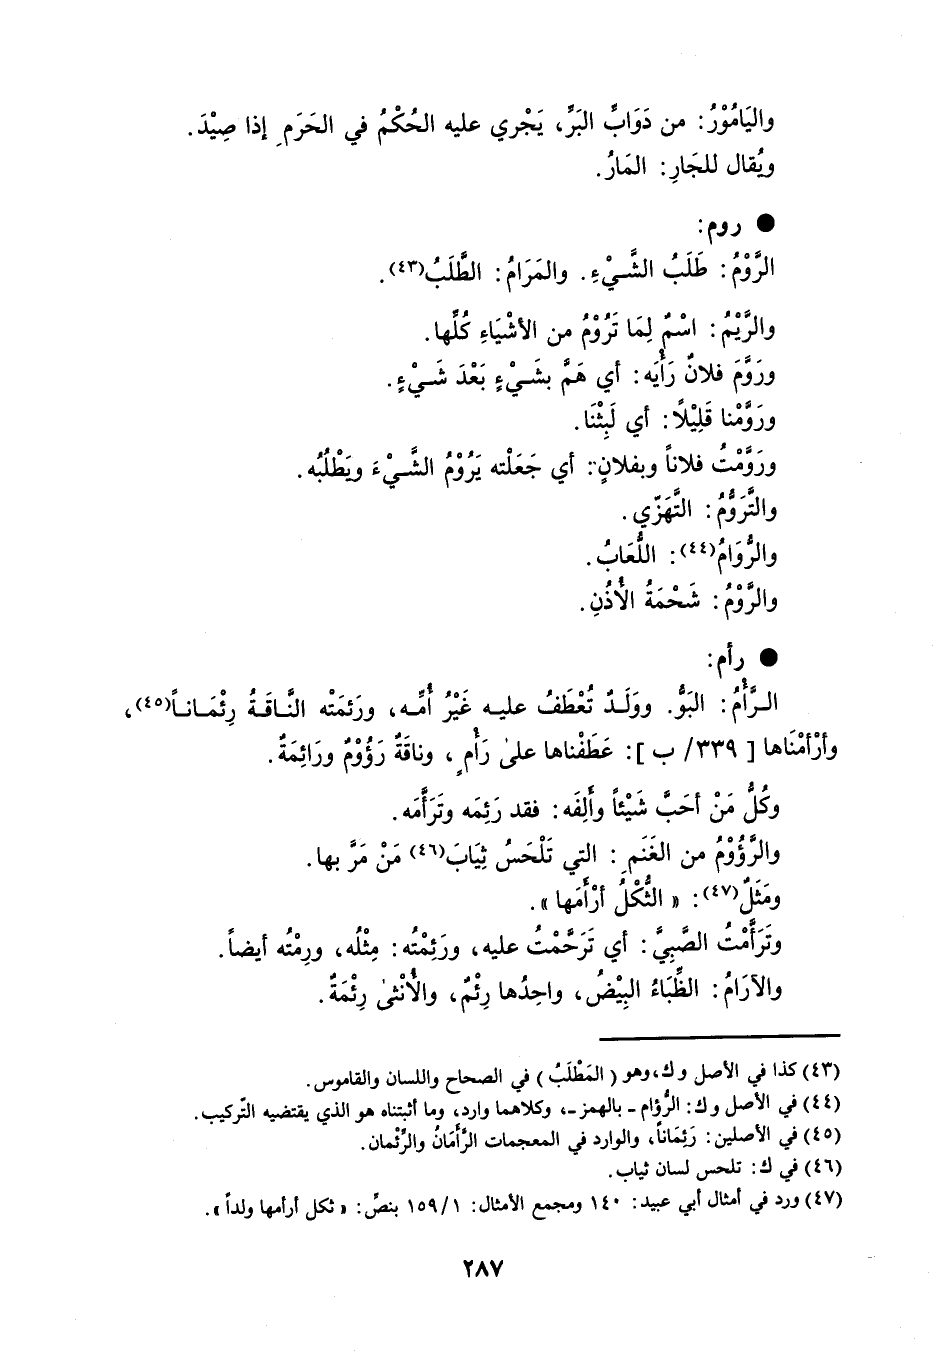 واليَامُوْرُ: من دَوَابِّ البَرِّ، يَجْري عليه الحُكْمُ في الحَرَمِ إذا صِيْدَ.
ويُقال للجَارِ: المَارُ.
● روم:
الرَّوْمُ: طَلَبُ الشَّيْءِ. والمَرَامُ: الطَّلَبُ(٤٣).
والرَّيْمُ: اسْمٌ لِمَا تَرُوْمُ من الأشْيَاءِ كُلِّها.
ورَوَّمَ فلانٌ رَأْيَه: أي هَمَّ بشَيْءٍ بَعْدَ شَيْءٍ.
ورَوَّمْنا قَلِيْلًا: أي لَبِثْنَا.
ورَوَّمْتُ فلاناً وبفلانٍ: أي جَعَلْته يَرُوْمُ الشَّيْءَ ويَطْلُبُه.
والتَّرَوُّمُ: التَّهَزّي.
والرُّوَامُ(٤٤): اللُّعَابُ.
والرَّوْمُ: شَحْمَةُ الأُذُنِ.
● رأم:
الرَّأْمُ: البَوُّ. ووَلَدٌ تُعْطَفُ عليه غَيْرُ أُمِّه، ورَئمَتْه النَّاقَةُ رِئْمَاناً(٤٥)،
وأرْأمْنَاها [ ٣٣٩/ ب ]: عَطَفْناها علىٰ رَأْمٍ، وناقَةٌ رَؤُوْمٌ ورَائِمَةٌ.
وكُلُّ مَنْ أحَبَّ شَيْئاً وأَلِفَه: فقد رَئِمَه وتَرَأَّمَه.
والرَّؤُوْمُ من الغَنَمِ: التي تَلْحَسُ ثِيَابَ(٤٦) مَنْ مَرَّ بها.
ومَثَلٌ(٤٧): « الثُّكْلُ أرْأَمَها ».
وتَرَأَّمْتُ الصَّبِيَّ: أي تَرَحَّمْتُ عليه، ورَئِمْتُه: مِثْلُه، ورِمْتُه أيضاً.
والآرَامُ: الظِّبَاءُ البِيْضُ، واحِدُها رِئْمٌ، والأُنْثىٰ رِئْمَةٌ.
(٤٣) كذا في الأصل و ك، وهو ( المَطْلَبُ ) في الصحاح واللسان والقاموس.
(٤٤) في الأصل و ك: الرُّؤام ـ بالهمز ـ، وكلاهما وارد، وما أثبتناه هو الذي يقتضيه التّركيب.
(٤٥) في الأصلين: رَئِمَاناً، والوارد في المعجمات الرَّأَمَانُ والرِّئْمان.
(٤٦) في ك: تلحس لسان ثياب.
(٤٧) ورد في أمثال أبي عبيد: ١٤٠ ومجمع الأمثال: ١/ ١٥٩ بنصِّ: « ثكل أرأمها ولداً ».
٢٨٧